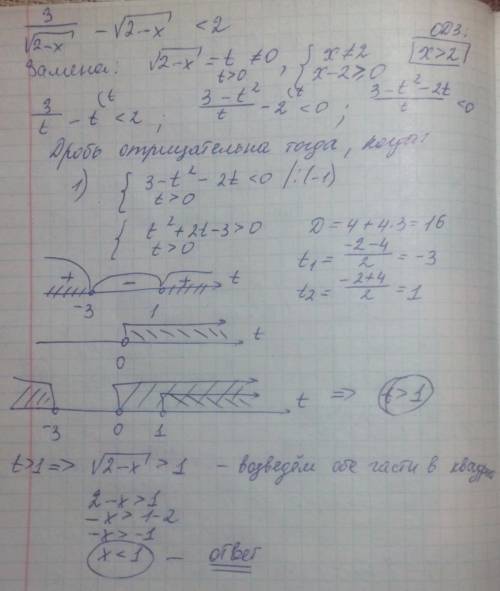 3/√(2-x) - √(2-x) < 2
ОДЗ:
Замена: √(2-x) = t ≠ 0, t>0, { x≠2
x-2≥0
x>2
3/t - t^(t < 2; (3-t²)/t - 2^(t < 0; (3-t²-2t)/t < 0
Дробь отрицательна тогда, когда:
1) { 3-t²-2t<0 /:(-1)
t>0
{ t²+2t-3>0
t>0
D = 4+4·3=16
t₁ = (-2-4)/2 = -3
t₂ = (-2+4)/2 = 1
+ - + t
-3 1
t
0
t => t>1
-3 0 1
t>1 => √(2-x) > 1 - возведём обе части в квадрат
2-x>1
-x>1-2
-x>-1
x<1 - ответ